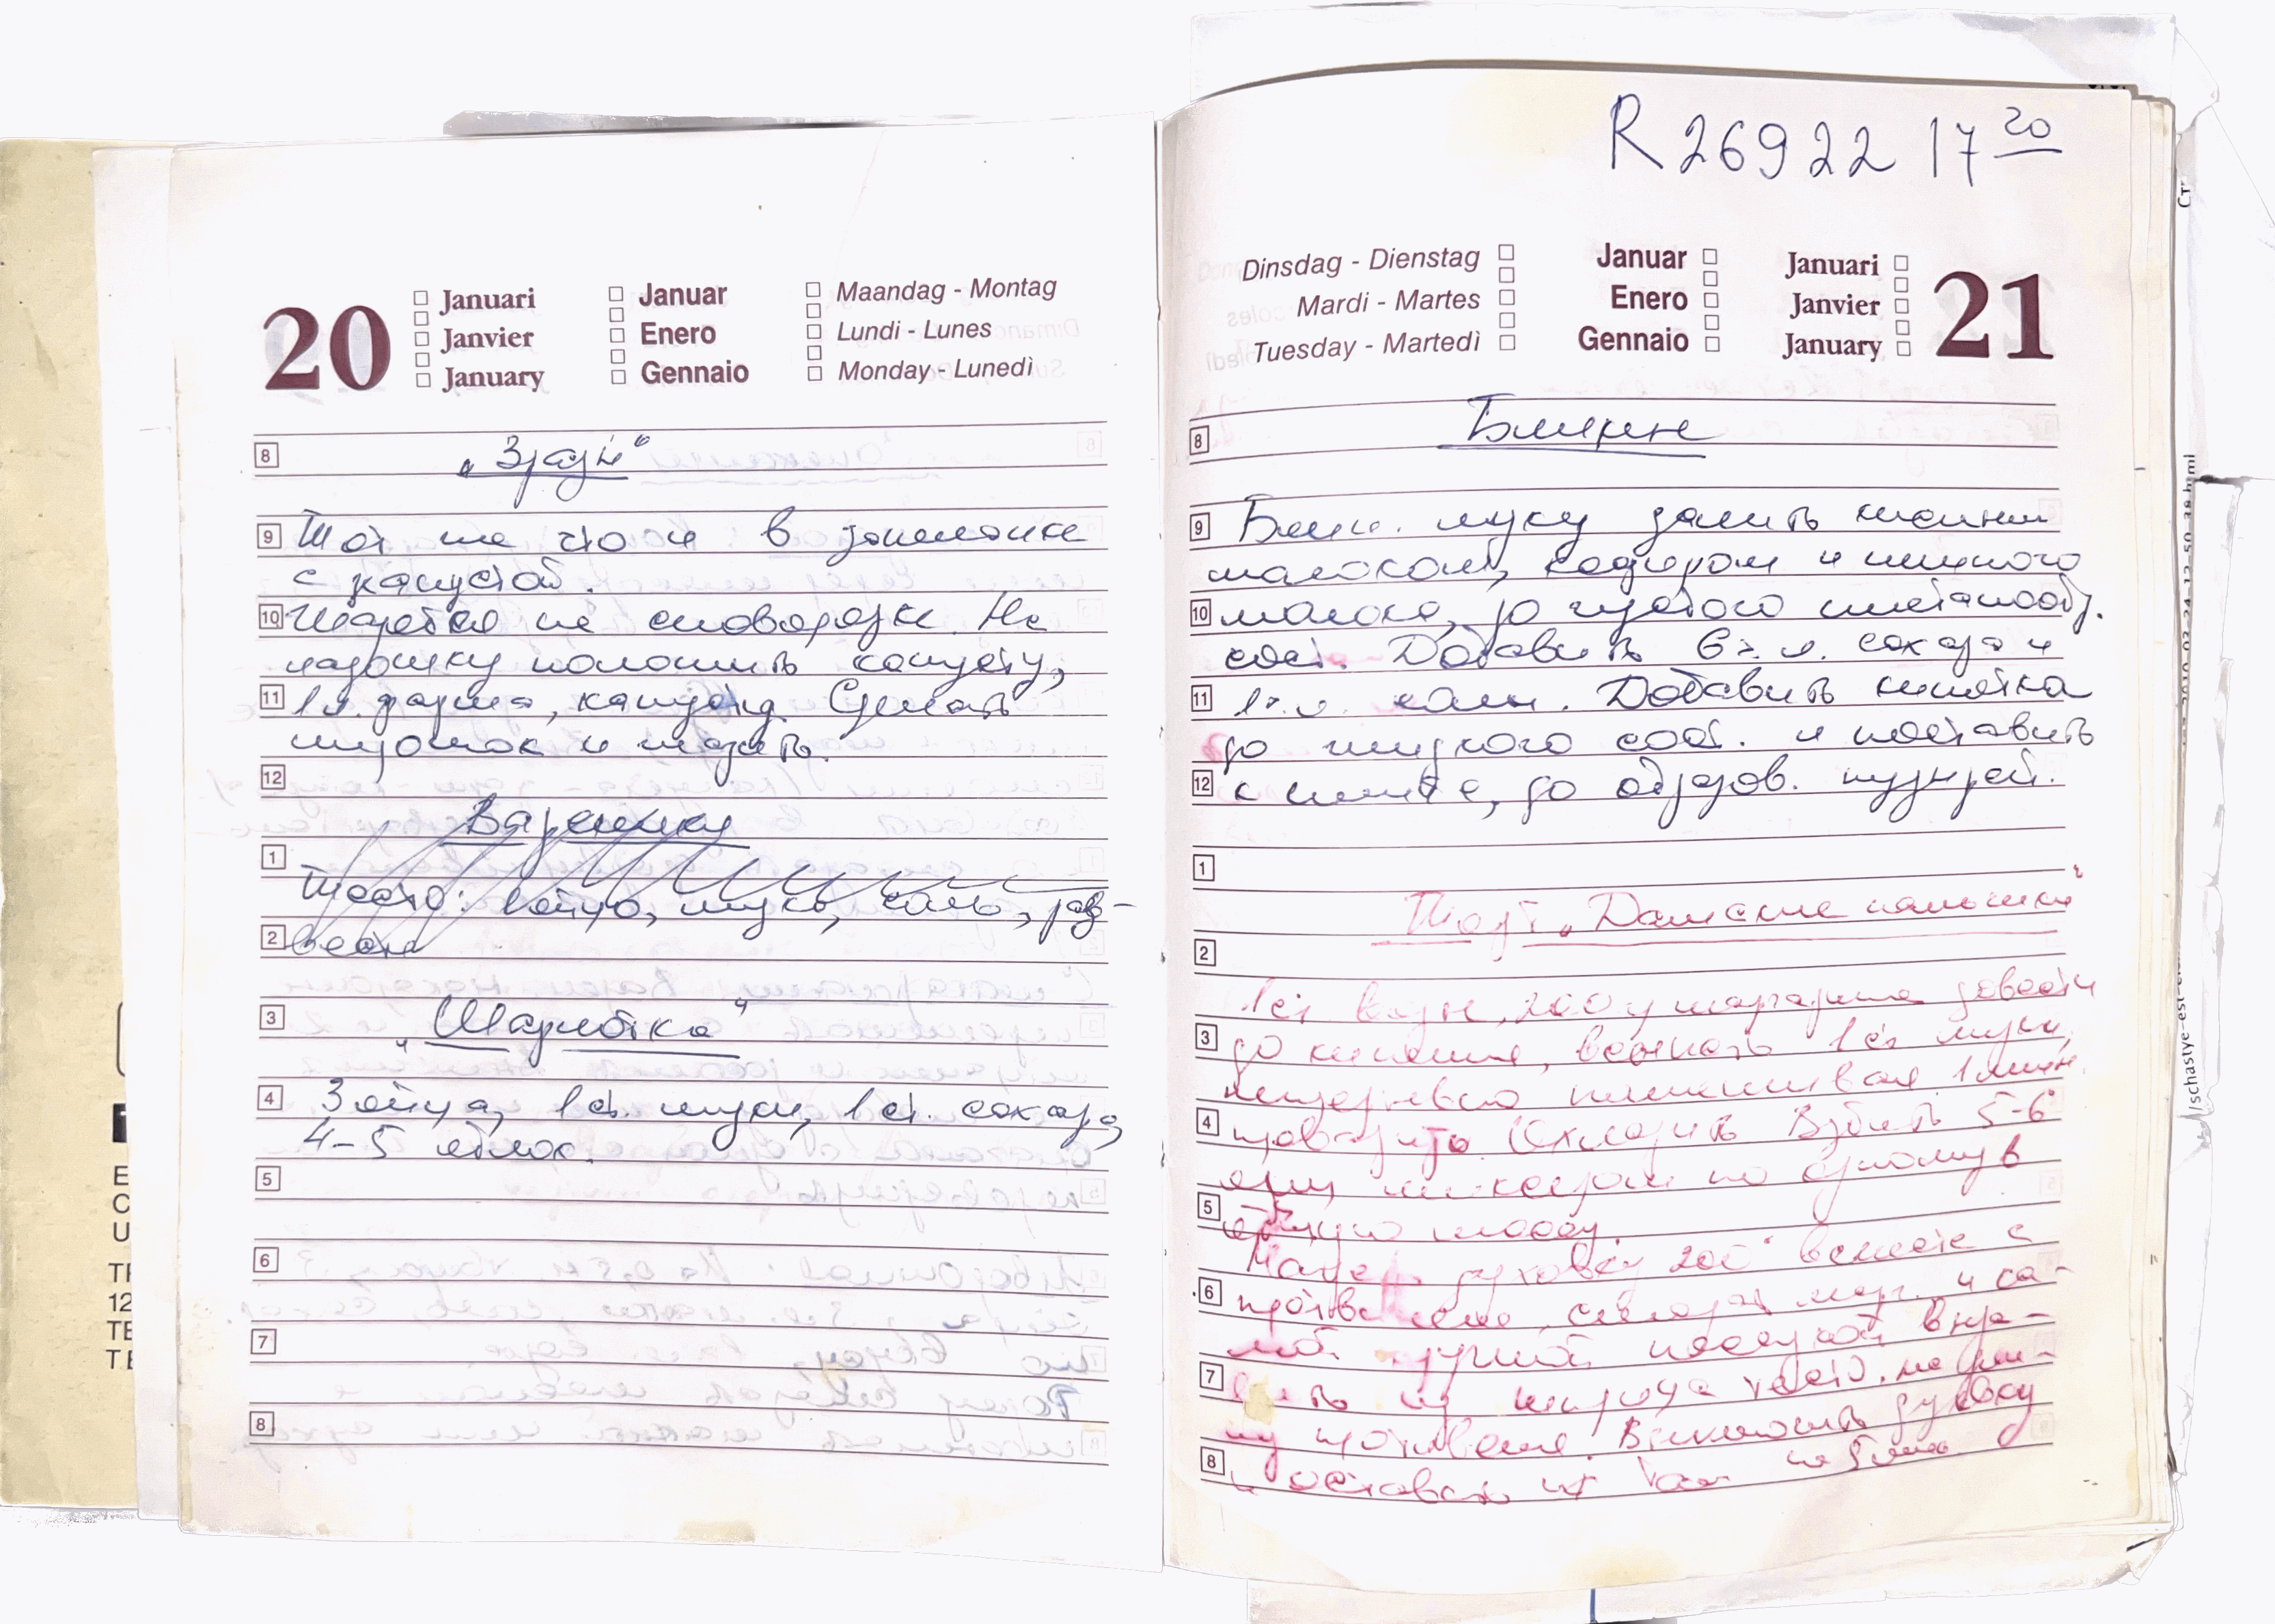 20
Januari
Janvier
January
Januar
Enero
Gennaio
Maandag - Montag
Lundi - Lunes
Monday - Lunedì
8 „Зразы“
9 Тот же что и в
с капустой.
10 Жарятся на сковородке. На
ладошку положить капусту,
11 1 л. фарша, капуста. Сделать
и жарить.
12
Вареники
1
Тесто: 1 яйцо, мука, соль, раз-
2
3 „Шарлотка“
4 3 яйца, 1 ст. муки, 1 ст. сахара,
4-5 яблок.
5
6
7
8
R 26922 17 20
Dinsdag - Dienstag
Mardi - Martes
Tuesday - Martedì
Januar
Enero
Gennaio
Januari
Janvier
January
21
8 Блины
9 Блин. муку залить кислым
молоком, кефиром и немного
10 молока, до густого сметанообр.
сост. Добавить 6 ч. л. сахара и
11 1 ч. л. соли. Добавить кипятка
до жидкого сост. и поставить
12 к плите, до образов. пузырей.
1
Торт „Дамские пальчики“
2
1 ст воды, 200 г маргарина довести
3 до кипения, всыпать 1 ст муки,
непрерывно помешивая 1 мин.
4 проварить. Охладить. Взбить 5-6
яиц миксером по одному в
5 массу.
духовку 200° вместе с
6 противнем, смазать марг. и са-
7 из шприца тесто. на
противень. Включить духовку
8 и оставить их там на 5 мин